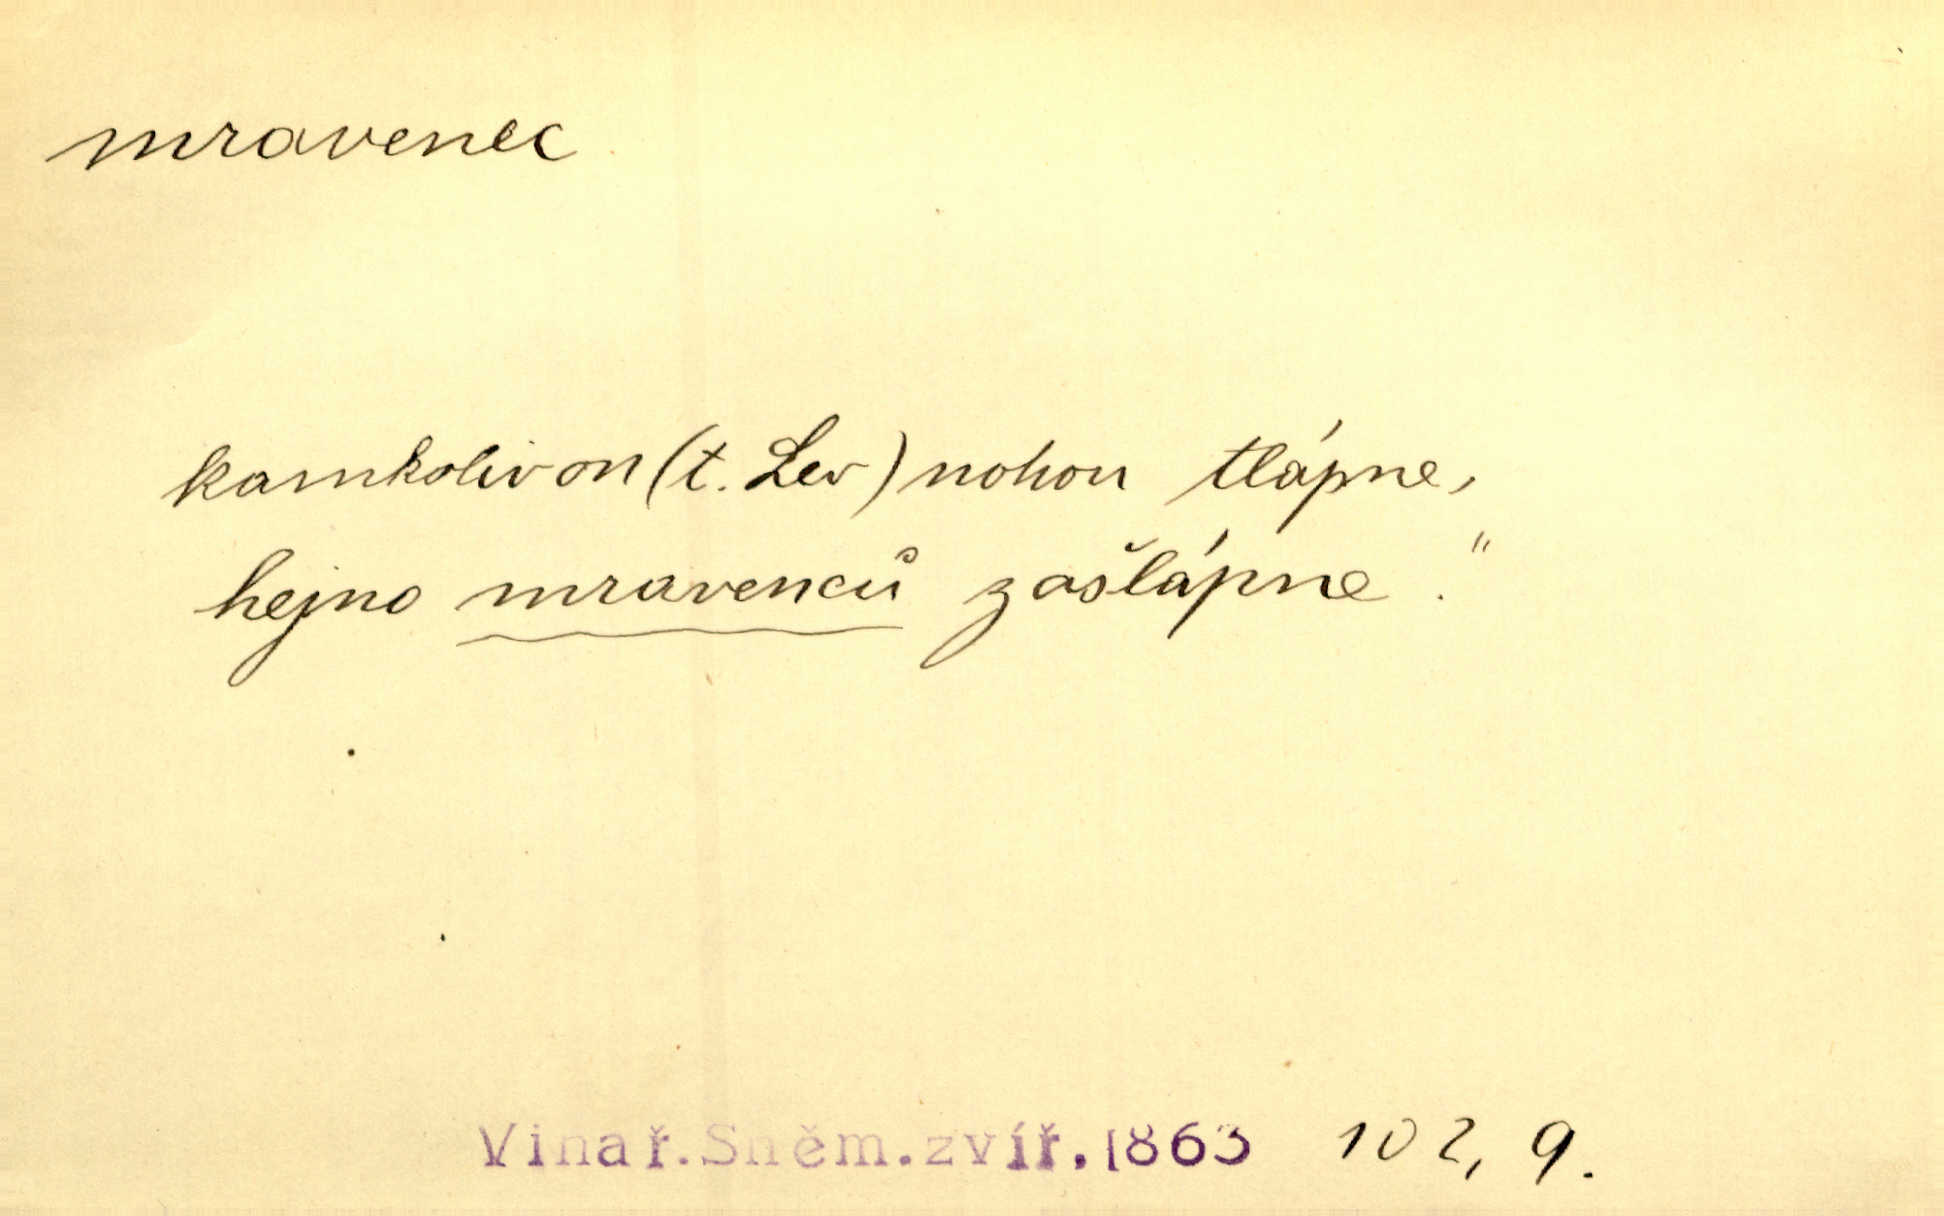 mravenec
kamkoliv on (t. Lev) nohou tlápne,
hejno mravenců zašlápne."
Vinař.Sněm.zvíř.1863 102, 9.